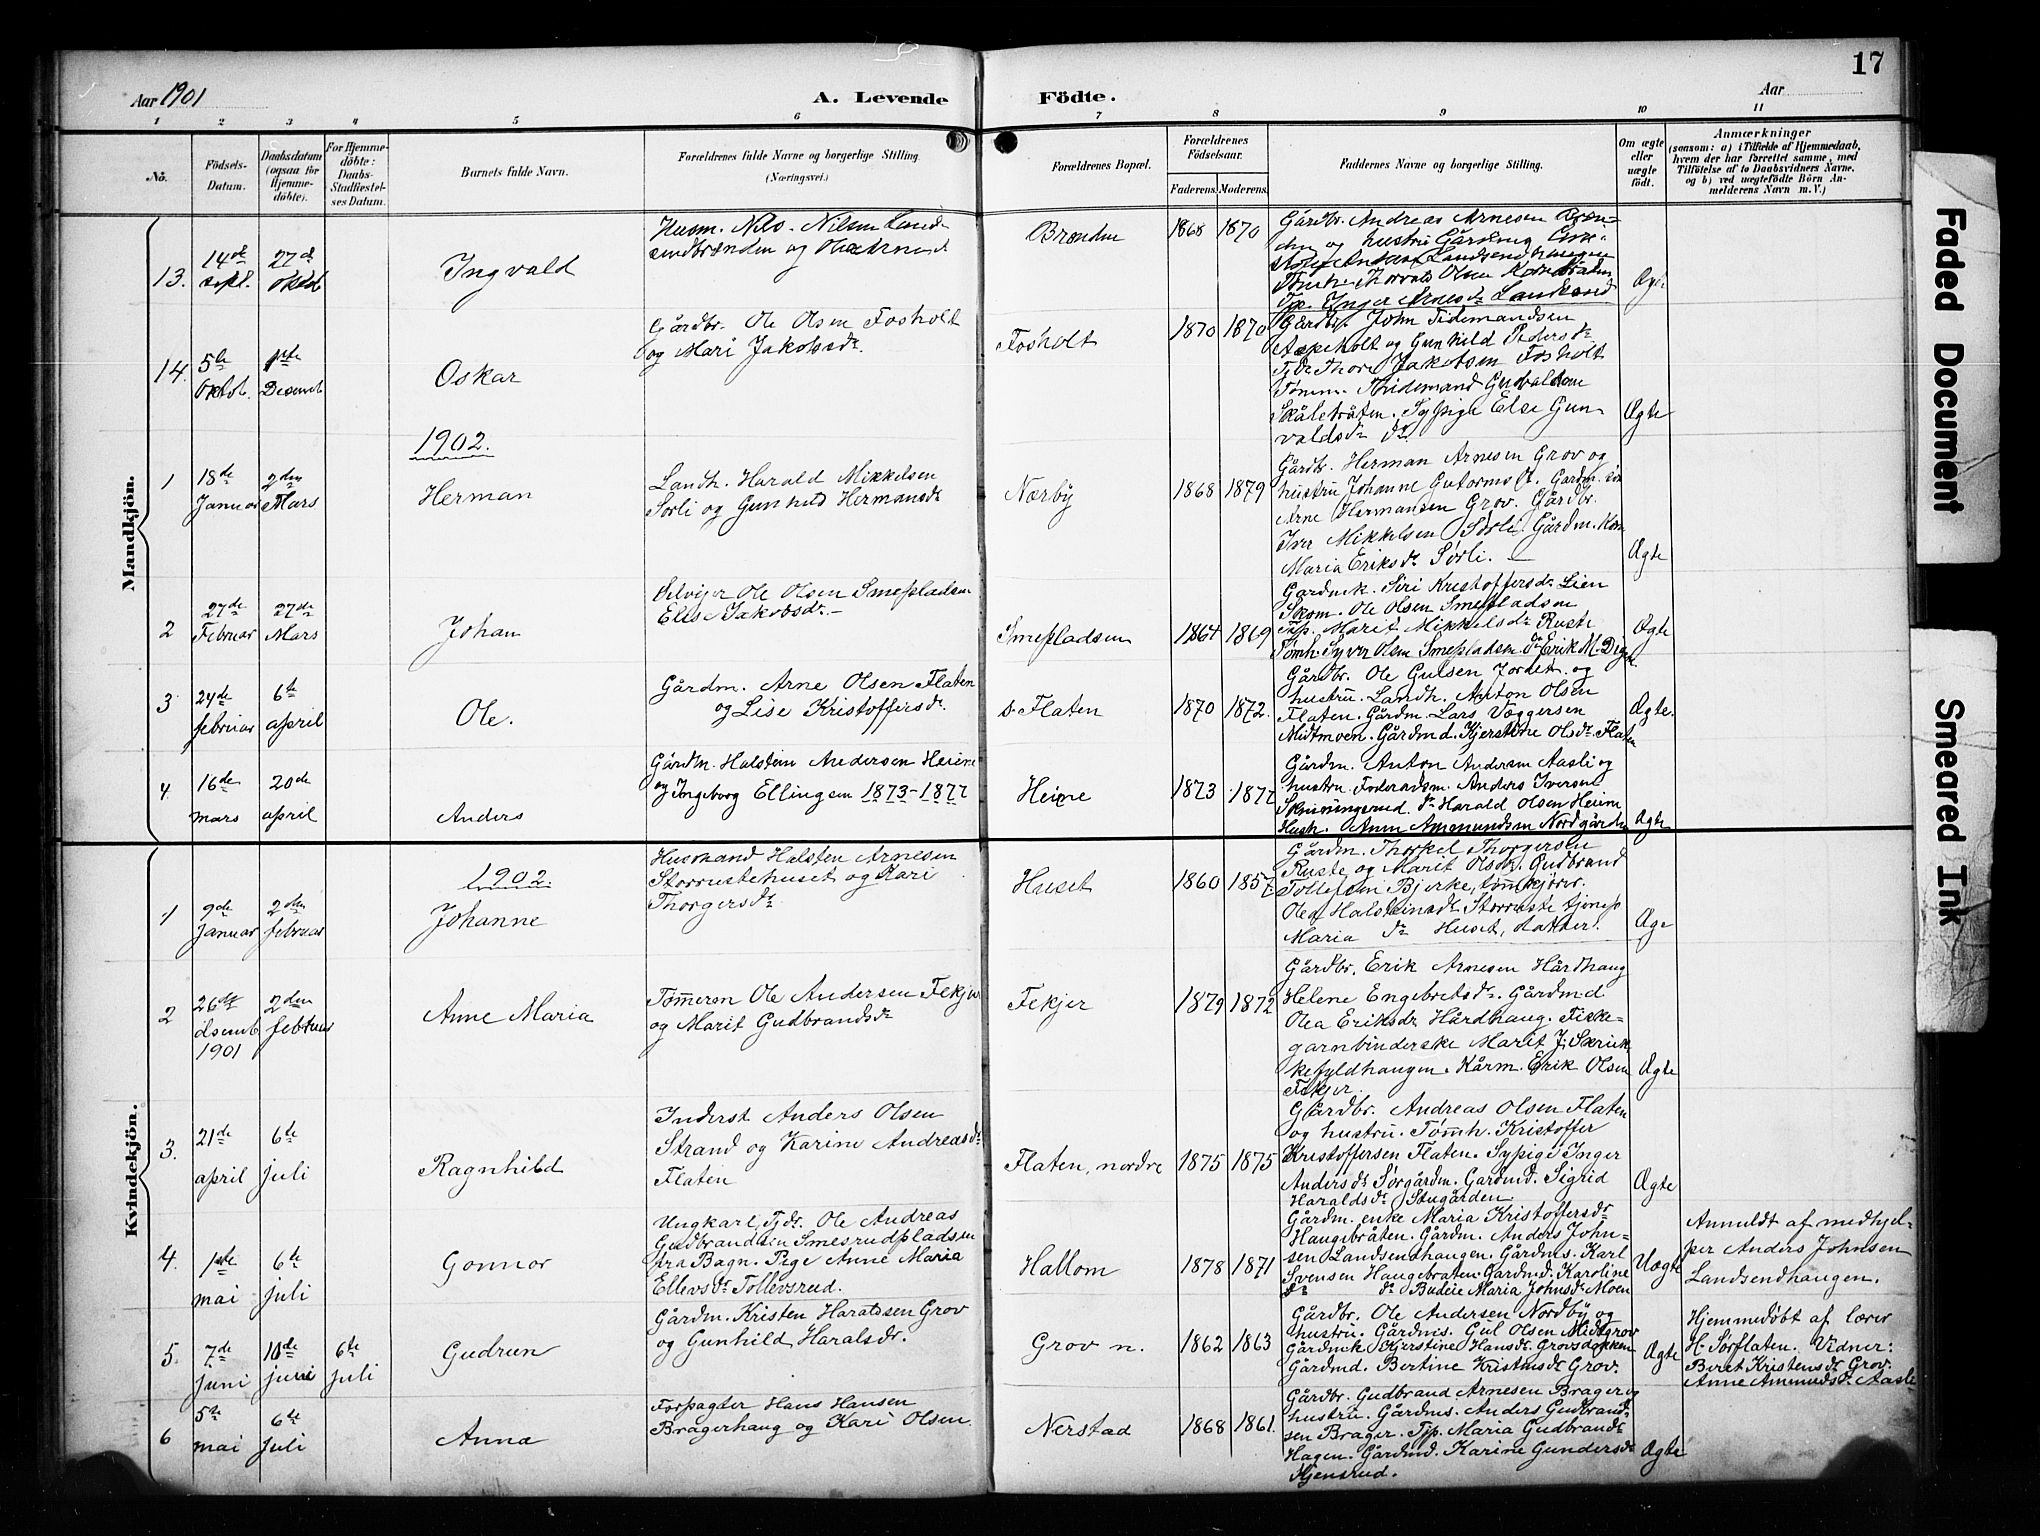 17
Aar 1901
A. Levende Födte.
Aar
1 2 3 4 5 6 7 8 9 10 11
No.
Födsels-Datum.
Daabsdatum (ogsaa for Hjemme-döbte).
For Hjemme-döbte: Daabs-Stadfæstel-ses Datum.
Barnets fulde Navn.
Forældrenes fulde Navne og borgerlige Stilling.
(Næringsvei.)
Forældrenes Bopæl.
Forældrenes Födselsaar.
Faderens. Moderens.
Faddernes Navne og borgerlige Stilling.
Om ægte eller uægte födt.
Anmærkninger
(saasom: a) i Tilfælde af Hjemmedaab,
hvem der har forrettet samme, med
Tilföielse af to Daabsvidners Navne,
og b) ved uægtefödte Börn An-
melderens Navn m. V.)
Mandkjön.
13. 14de sept. 27de oktob
Ingvald
Husm. Nils Nilsen
og
Brenden
1868 1870
Gårdbr. Andreas Arnesen Bren-
den og hustru
Inger Arnesdr Landsend
Ægte
14. 5te Oktob. 1ste Desemb
Oskar
Gårdbr. Ole Olsen Fosholt
og Mari Jakobsdr.
Fosholt
1870 1870
Gårdbr. John Tidemandsen
og Gunhild Pedersdr
Thore Jakobsen Fosholt
Tømm. Thidemand
Sypige Else Gun-
valdsdr
Ægte
1902.
1 18de Januar 2den Mars
Herman
Landh. Harald Mikkelsen
Sørli og Gunhild Hermansdr
Nærby
1868 1879
Gårdbr. Herman Arnesen Grov og
hustru Johanne Gutormsdr. Gårdm.
Arne Hermansen Grov. Gårdbr.
Iver Mikkelsen Sørli. Gårdm. Kone
Maria Eriksdr Sørli. —
Ægte
2 27de Februar 27de Mars
Johan
Selveier Ole Olsen Smepladsen
Elise Jakobsdr. —
Smepladsen
1864 1869
Gårdmk. Siri Kristoffersdr. Lien
Skom. Ole Olsen Smepladsen
Tjp. Marit Mikkelsdr Ruste
Tømh. Syver Olsen Smepladsen. dr Erik M.
Ægte
3 24de februar 6te april
Ole.
Gårdm. Arne Olsen Flaten
og Lise Kristoffersdr.
s. Flaten
1870 1872.
Gårdbr. Ole Gulsen Jordet og
hustru. Landh. Anton Olsen
Flaten. Gårdm. Lars Væggersen
Midtmoen. Gårdmd. Kjerstine Olsdr. Flaten
Ægte.
4 16de mars 20de april
Anders
Gårdm. Halstein Andersen Heiene
og Ingeborg Ellingsen 1873-1877
Heiene
1873 1877
Gårdm. Anton Andersen Aasli og
hustru. Anders Iversen
dr Harald Olsen Heiene
Hush. Anne Amundsen Nordgården
Ægte
Kvindekjön.
1902.
1 9de Januar 2den februar
Johanne
Husmand Halsten Arnesen
Storrustehuset og Kari
Thorgersdr
Huset
1860 1857
Gårdm. Thorkel Thorgersen
Ruste og Marit Olsdr. Gudbrand
Tollefsen Bjerke, tømkjører.
Olea Halsteinsdr Storruste tjenep.
Maria dr Huset, datter.
Æge
2 26de desemb 1901 2den februar
Anne Maria
Tømmerm Ole Andersen Fekjer
og Marit Gudbrandsdr
Fekjer
1879 1872
Gårdbr. Erik Arnesen Hårdhaug
Helene Engebretsdr. Gårdmd
Olea Eriksdr Hårdhaug. Fiske-
garnbinderske Marit J. Skrik-
kefyldhaugen. Kårm. Erik Olsen
Fekjer.
Ægte
3. 21de april 6te juli
Ragnhild
Inderst Anders Olsen
Strand og Karine Andreasdr
Flaten
Flaten, nordre
1875 1875
Gårdbr. Andreas Olsen Flaten
og hustru. Tømh. Kristoffer
Kristoffersen Flaten. Sypige Inger
Andersdr Sørgården. Gårdmd. Sigrid
Haraldsdr Stugården.
Ægte
4. 1ste mai 6te juli
Gonnor
Ungkarl, Tjdr. Ole Andreas
Gudbrandsen Smesrudpladsen
fra Bagn. Pige Anne Maria
Ellevsdr Tollevsrud.
Hallom
1878 1871
Gårdm. enke Maria Kristoffersdr
Haugebråten. Gårdm. Anders John-
sen Landsendhaugen. Gårdms. Karl
Svensen Haugebråten. Gårdmd. Karoline
dr dr Budeie Maria Johnsdr Moen
Uægte
Anmeldt af medhjel-
per Anders Johnsen
Landsendhaugen.
5. 7de juni 10de juni 6te juli
Gudrun
Gårdm. Kristen Haraldsen Grov
og Gunhild Haralsdr.
Grov n.
1862 1863
Gårdbr. Ole Andersen Nordby og
hustru. Gårdms. Gul Olsen Midtgrov
Gårdmk Kjerstine Hansdr. Grovsdokken
Gårdmd. Bertine Kristensdr Grov.
Ægte
Hjemmedøbt af lærer
H. Sørflaten. Vidner:
Beret Kristensdr Grov.
Anne Ammundsdr. Aasli
6 5te mai 6te juli
Anna
Forpagter Hans Hansen
Bragerhaug og Kari Olsen
Nerstad
1868 1861.
Gårdbr. Gudbrand Arnesen Brager og
hustru. Gårdms. Anders Gudbrand-
sen Brager. Tjp. Maria Gudbrandsdr
Hagen. Gårdmd. Karine Gundersdr
Hjensrud.
Ægte
Faded Document
Smeared Ink